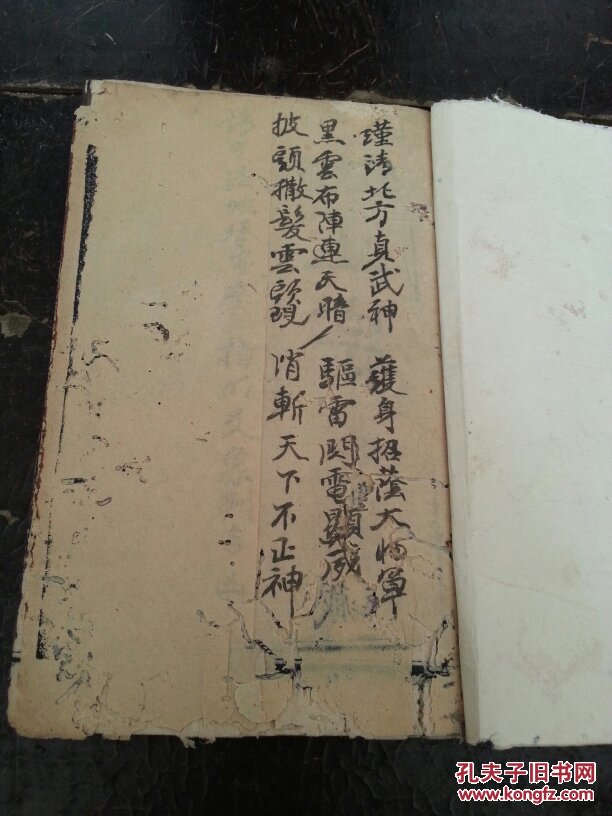 謹請北方真武神 護身招蔭大将軍
黑雲布陣連天暗 驅雷閃電顯威
披頭撒髮雲 消斬天下不正神
孔夫子旧书网
www.kongfz.com